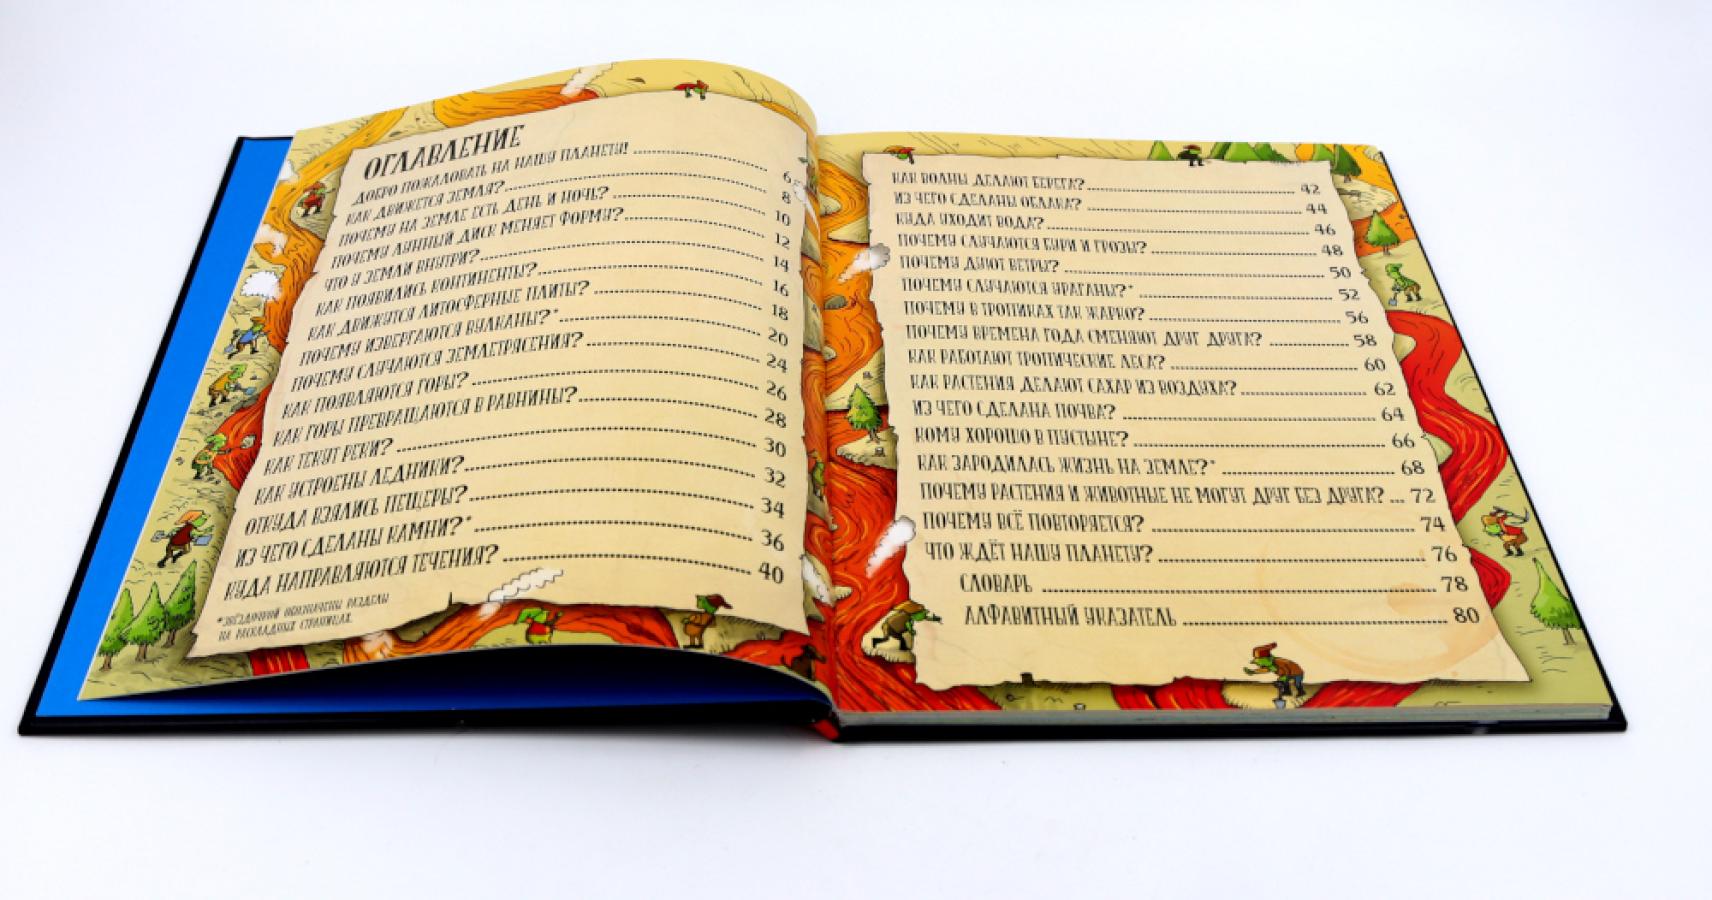 ОГЛАВЛЕНИЕ
ДОБРО ПОЖАЛОВАТЬ НА НАШУ ПЛАНЕТУ! 6
КАК ДВИЖЕТСЯ ЗЕМЛЯ? 8
ПОЧЕМУ НА ЗЕМЛЕ ЕСТЬ ДЕНЬ И НОЧЬ? 10
ПОЧЕМУ ЛУННЫЙ ДИСК МЕНЯЕТ ФОРМУ? 12
ЧТО У ЗЕМЛИ ВНУТРИ? 14
КАК ПОЯВИЛИСЬ КОНТИНЕНТЫ? 16
КАК ДВИЖУТСЯ ЛИТОСФЕРНЫЕ ПЛИТЫ? 18
ПОЧЕМУ ИЗВЕРГАЮТСЯ ВУЛКАНЫ?* 20
ПОЧЕМУ СЛУЧАЮТСЯ ЗЕМЛЕТРЯСЕНИЯ? 24
КАК ПОЯВЛЯЮТСЯ ГОРЫ? 26
КАК ГОРЫ ПРЕВРАЩАЮТСЯ В РАВНИНЫ? 28
КАК ТЕКУТ РЕКИ? 30
КАК УСТРОЕНЫ ЛЕДНИКИ? 32
ОТКУДА ВЗЯЛИСЬ ПЕЩЕРЫ? 34
ИЗ ЧЕГО СДЕЛАНЫ КАМНИ?* 36
КУДА НАПРАВЛЯЮТСЯ ТЕЧЕНИЯ? 40
*ЗВЁЗДОЧКОЙ ОБОЗНАЧЕНЫ РАЗДЕЛЫ
НА РАСКЛАДНЫХ СТРАНИЦАХ.
КАК ВОЛНЫ ДЕЛАЮТ БЕРЕГА? 42
ИЗ ЧЕГО СДЕЛАНЫ ОБЛАКА? 44
КУДА УХОДИТ ВОДА? 46
ПОЧЕМУ СЛУЧАЮТСЯ БУРИ И ГРОЗЫ? 48
ПОЧЕМУ ДУЮТ ВЕТРЫ? 50
ПОЧЕМУ СЛУЧАЮТСЯ УРАГАНЫ?* 52
ПОЧЕМУ В ТРОПИКАХ ТАК ЖАРКО? 56
ПОЧЕМУ ВРЕМЕНА ГОДА СМЕНЯЮТ ДРУГ ДРУГА? 58
КАК РАБОТАЮТ ТРОПИЧЕСКИЕ ЛЕСА? 60
КАК РАСТЕНИЯ ДЕЛАЮТ САХАР ИЗ ВОЗДУХА? 62
ИЗ ЧЕГО СДЕЛАНА ПОЧВА? 64
КОМУ ХОРОШО В ПУСТЫНЕ? 66
КАК ЗАРОДИЛАСЬ ЖИЗНЬ НА ЗЕМЛЕ?* 68
ПОЧЕМУ РАСТЕНИЯ И ЖИВОТНЫЕ НЕ МОГУТ ДРУГ БЕЗ ДРУГА? 72
ПОЧЕМУ ВСЁ ПОВТОРЯЕТСЯ? 74
ЧТО ЖДЁТ НАШУ ПЛАНЕТУ? 76
СЛОВАРЬ 78
АЛФАВИТНЫЙ УКАЗАТЕЛЬ 80